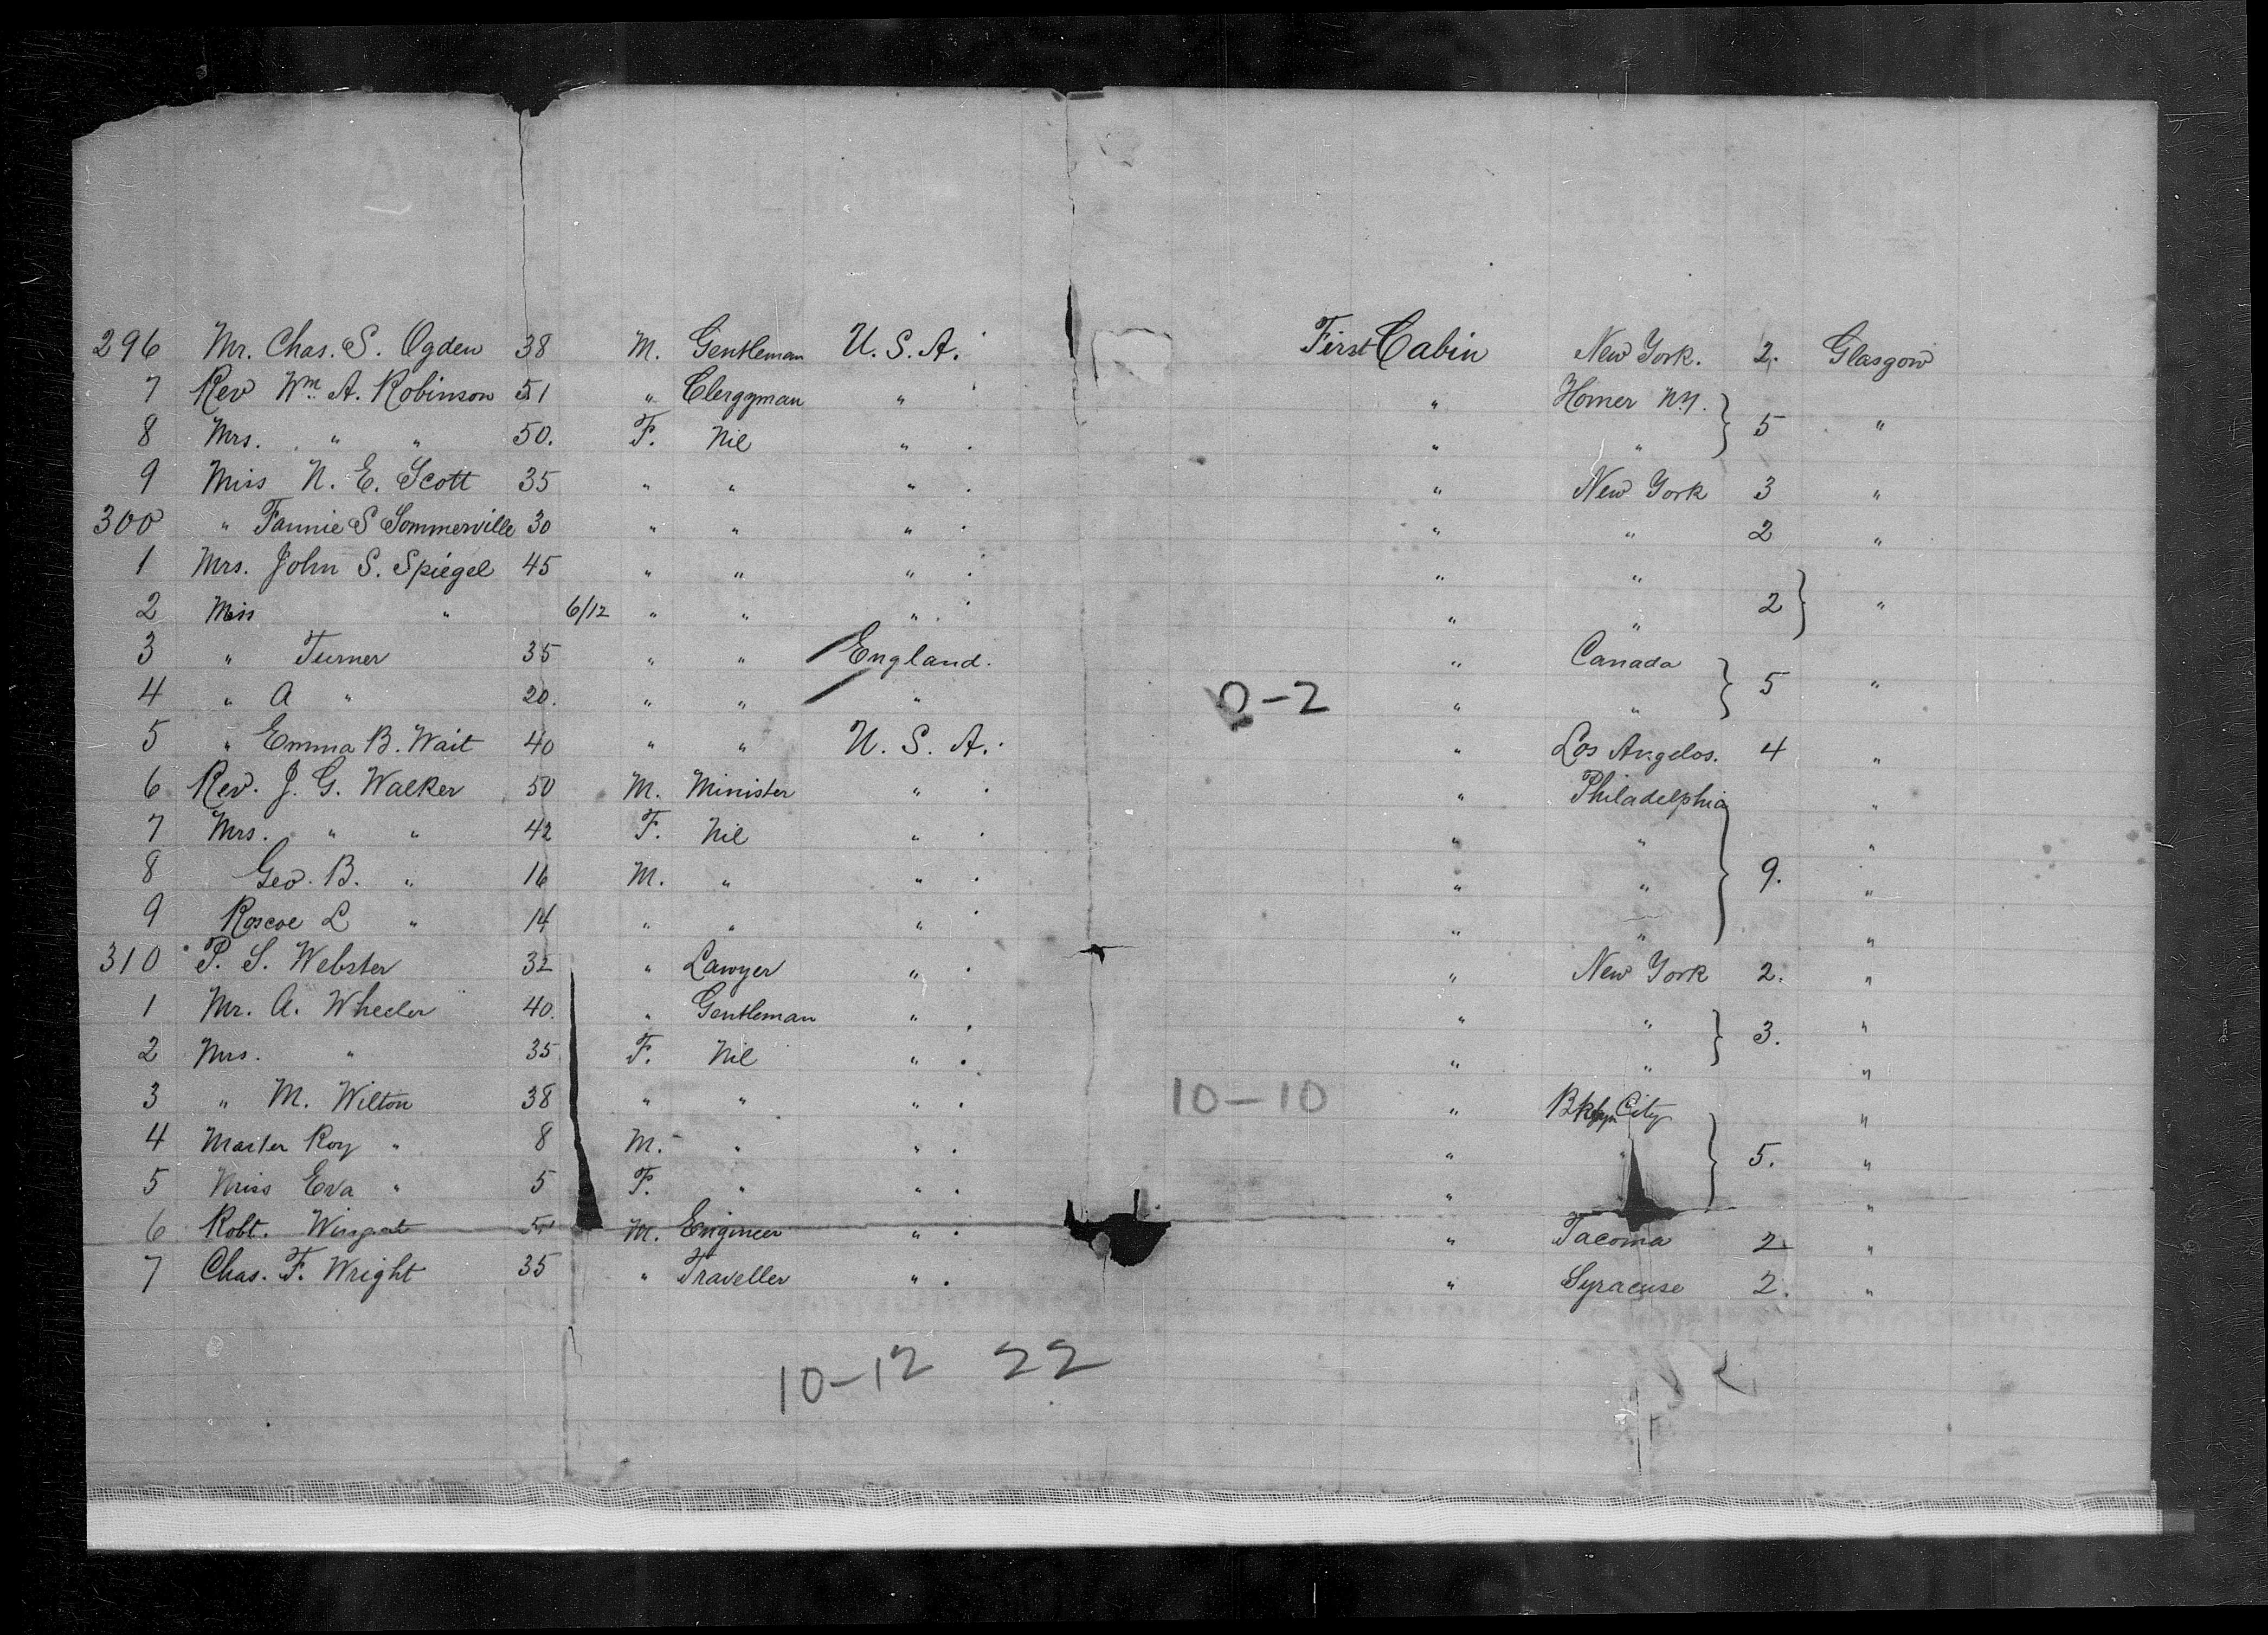 296 Mr. Chas. S. Ogden 38 M. Gentleman U. S. A. First Cabin New York. 2. Glasgow
7 Rev Wm. A. Robinson 51 " Clergyman " " Homer N.Y.
8 Mrs. " " 50. F. Nil " " " } 5 "
9 Miss N. E. Scott 35 " " " " New York 3 "
300 " Fannie S Sommerville 30 " " " " " 2 "
1 Mrs. John S. Spiegel 45 " " " " "
2 Miss " 6/12 " " " " " 2 } "
3 " Turner 35 " " England. " Canada
4 " A " 20. " " " 0-2 " " } 5 "
5 " Emma B. Wait 40 " " U. S. A. " Los Angelos. 4 "
6 Rev. J. G. Walker 50 M. Minister " " Philadelphia "
7 Mrs. " " 42 F. Nil " " " "
8 Geo. B. " 16 M. " " " " } 9. "
9 Roscoe L " 14 " " " " " "
310 P. S. Webster 32 " Lawyer " " New York 2. "
1 Mr. A. Wheeler 40. " Gentleman " " " } 3. "
2 Mrs. " 35 F. Nil " " " "
3 " M. Wilton 38 " " " 10-10 " Bklyn City "
4 Master Roy " 8 M. " " " } 5. "
5 Miss Eva " 5 F. " " " "
6 Robt. Wingate M. Engineer " " Tacoma 2 "
7 Chas. F. Wright 35 " Traveller " " Syracuse 2. "
10-12 22